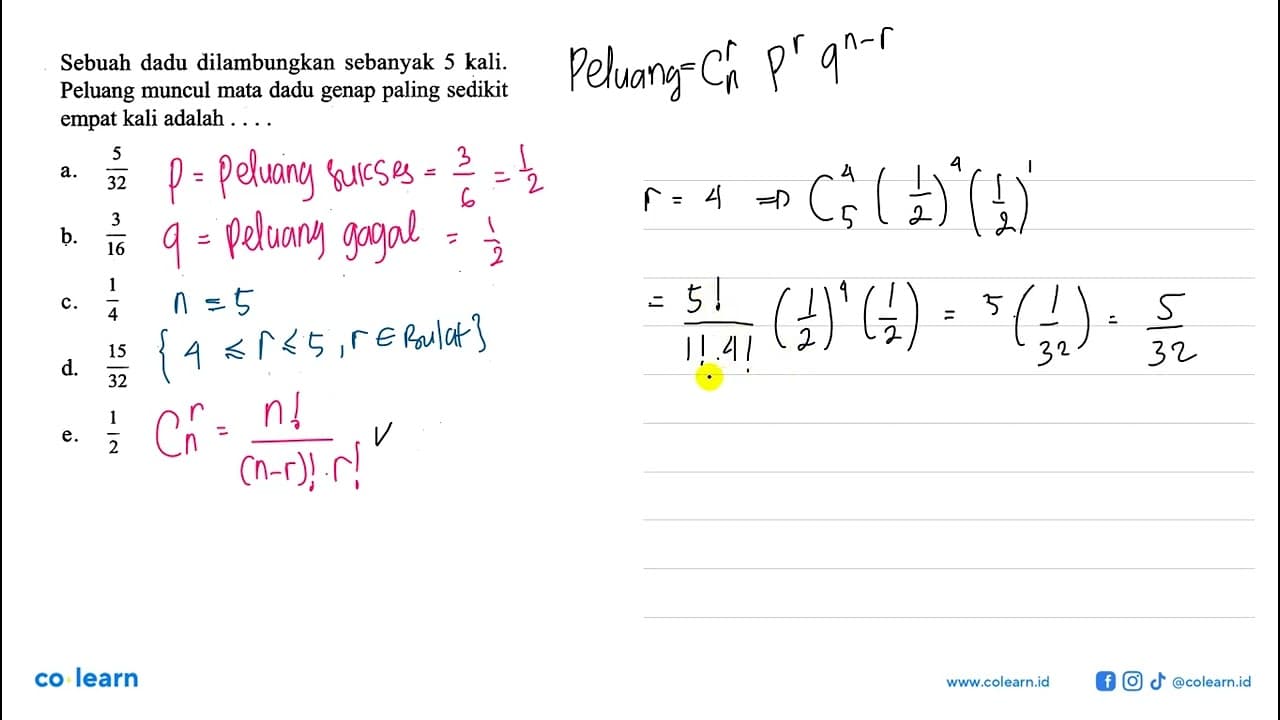 Sebuah dadu dilambungkan sebanyak 5 kali.
Peluang muncul mata dadu genap paling sedikit
empat kali adalah . . . .
a. 5/32
b. 3/16
c. 1/4
d. 15/32
e. 1/2
p = peluang sukses = 3/6 = 1/2
q = peluang gagal = 1/2
n = 5
{ 4 ≤ r ≤ 5 , r ∈ Bulat }
C_n^r = n! / (n-r)! . r! ✓
Peluang = C_n^r p^r q^{n-r}
r = 4 ⇒ C_5^4 (1/2)^4 (1/2)^1
= 5! / 1! . 4! (1/2)^4 (1/2) = 5 . (1/32) = 5/32
co learn
www.colearn.id
@colearn.id